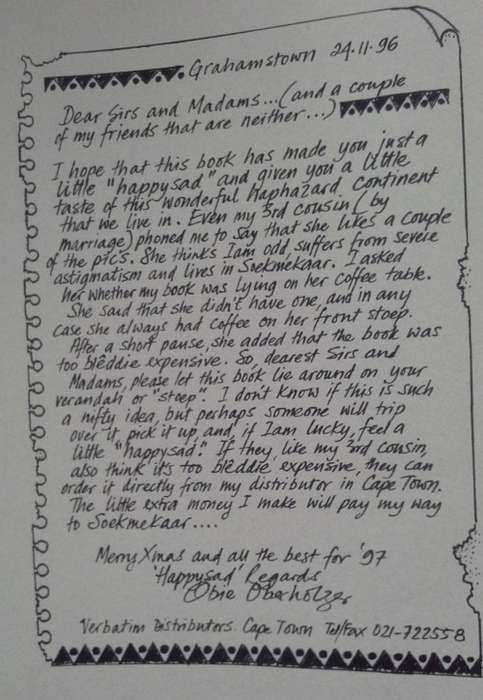 Grahamstown 24.11.96
Dear Sirs and Madams...(and a couple
of my friends that are neither...)
I hope that this book has made you just a
little "happysad" and given you a little
taste of this wonderful haphazard continent
that we live in. Even my 3rd cousin (by
marriage) phoned me to say that she likes a couple
of the pic's. She thinks I am odd, suffers from severe
astigmatism and lives in Soekmekaar. I asked
her whether my book was lying on her coffee table.
She said that she didn't have one, and in any
case she always had coffee on her front stoep.
After a short pause, she added that the book was
too blêddie expensive. So, dearest Sirs and
Madams, please let this book lie around on your
verandah or "stoep". I don't know if this is such
a nifty idea, but perhaps someone will trip
over it, pick it up, and, if I am lucky, feel a
little "happysad". If they, like my 3rd cousin,
also think it's too blêddie expensive, they can
order it directly from my distributor in Cape Town.
The little extra money I make will pay my way
to Soekmekaar....
Merry Xmas and all the best for '97
'Happysad' Regards
Obie Oberholzer
Verbatim Distributors. Cape Town Tel/Fax 021-722558